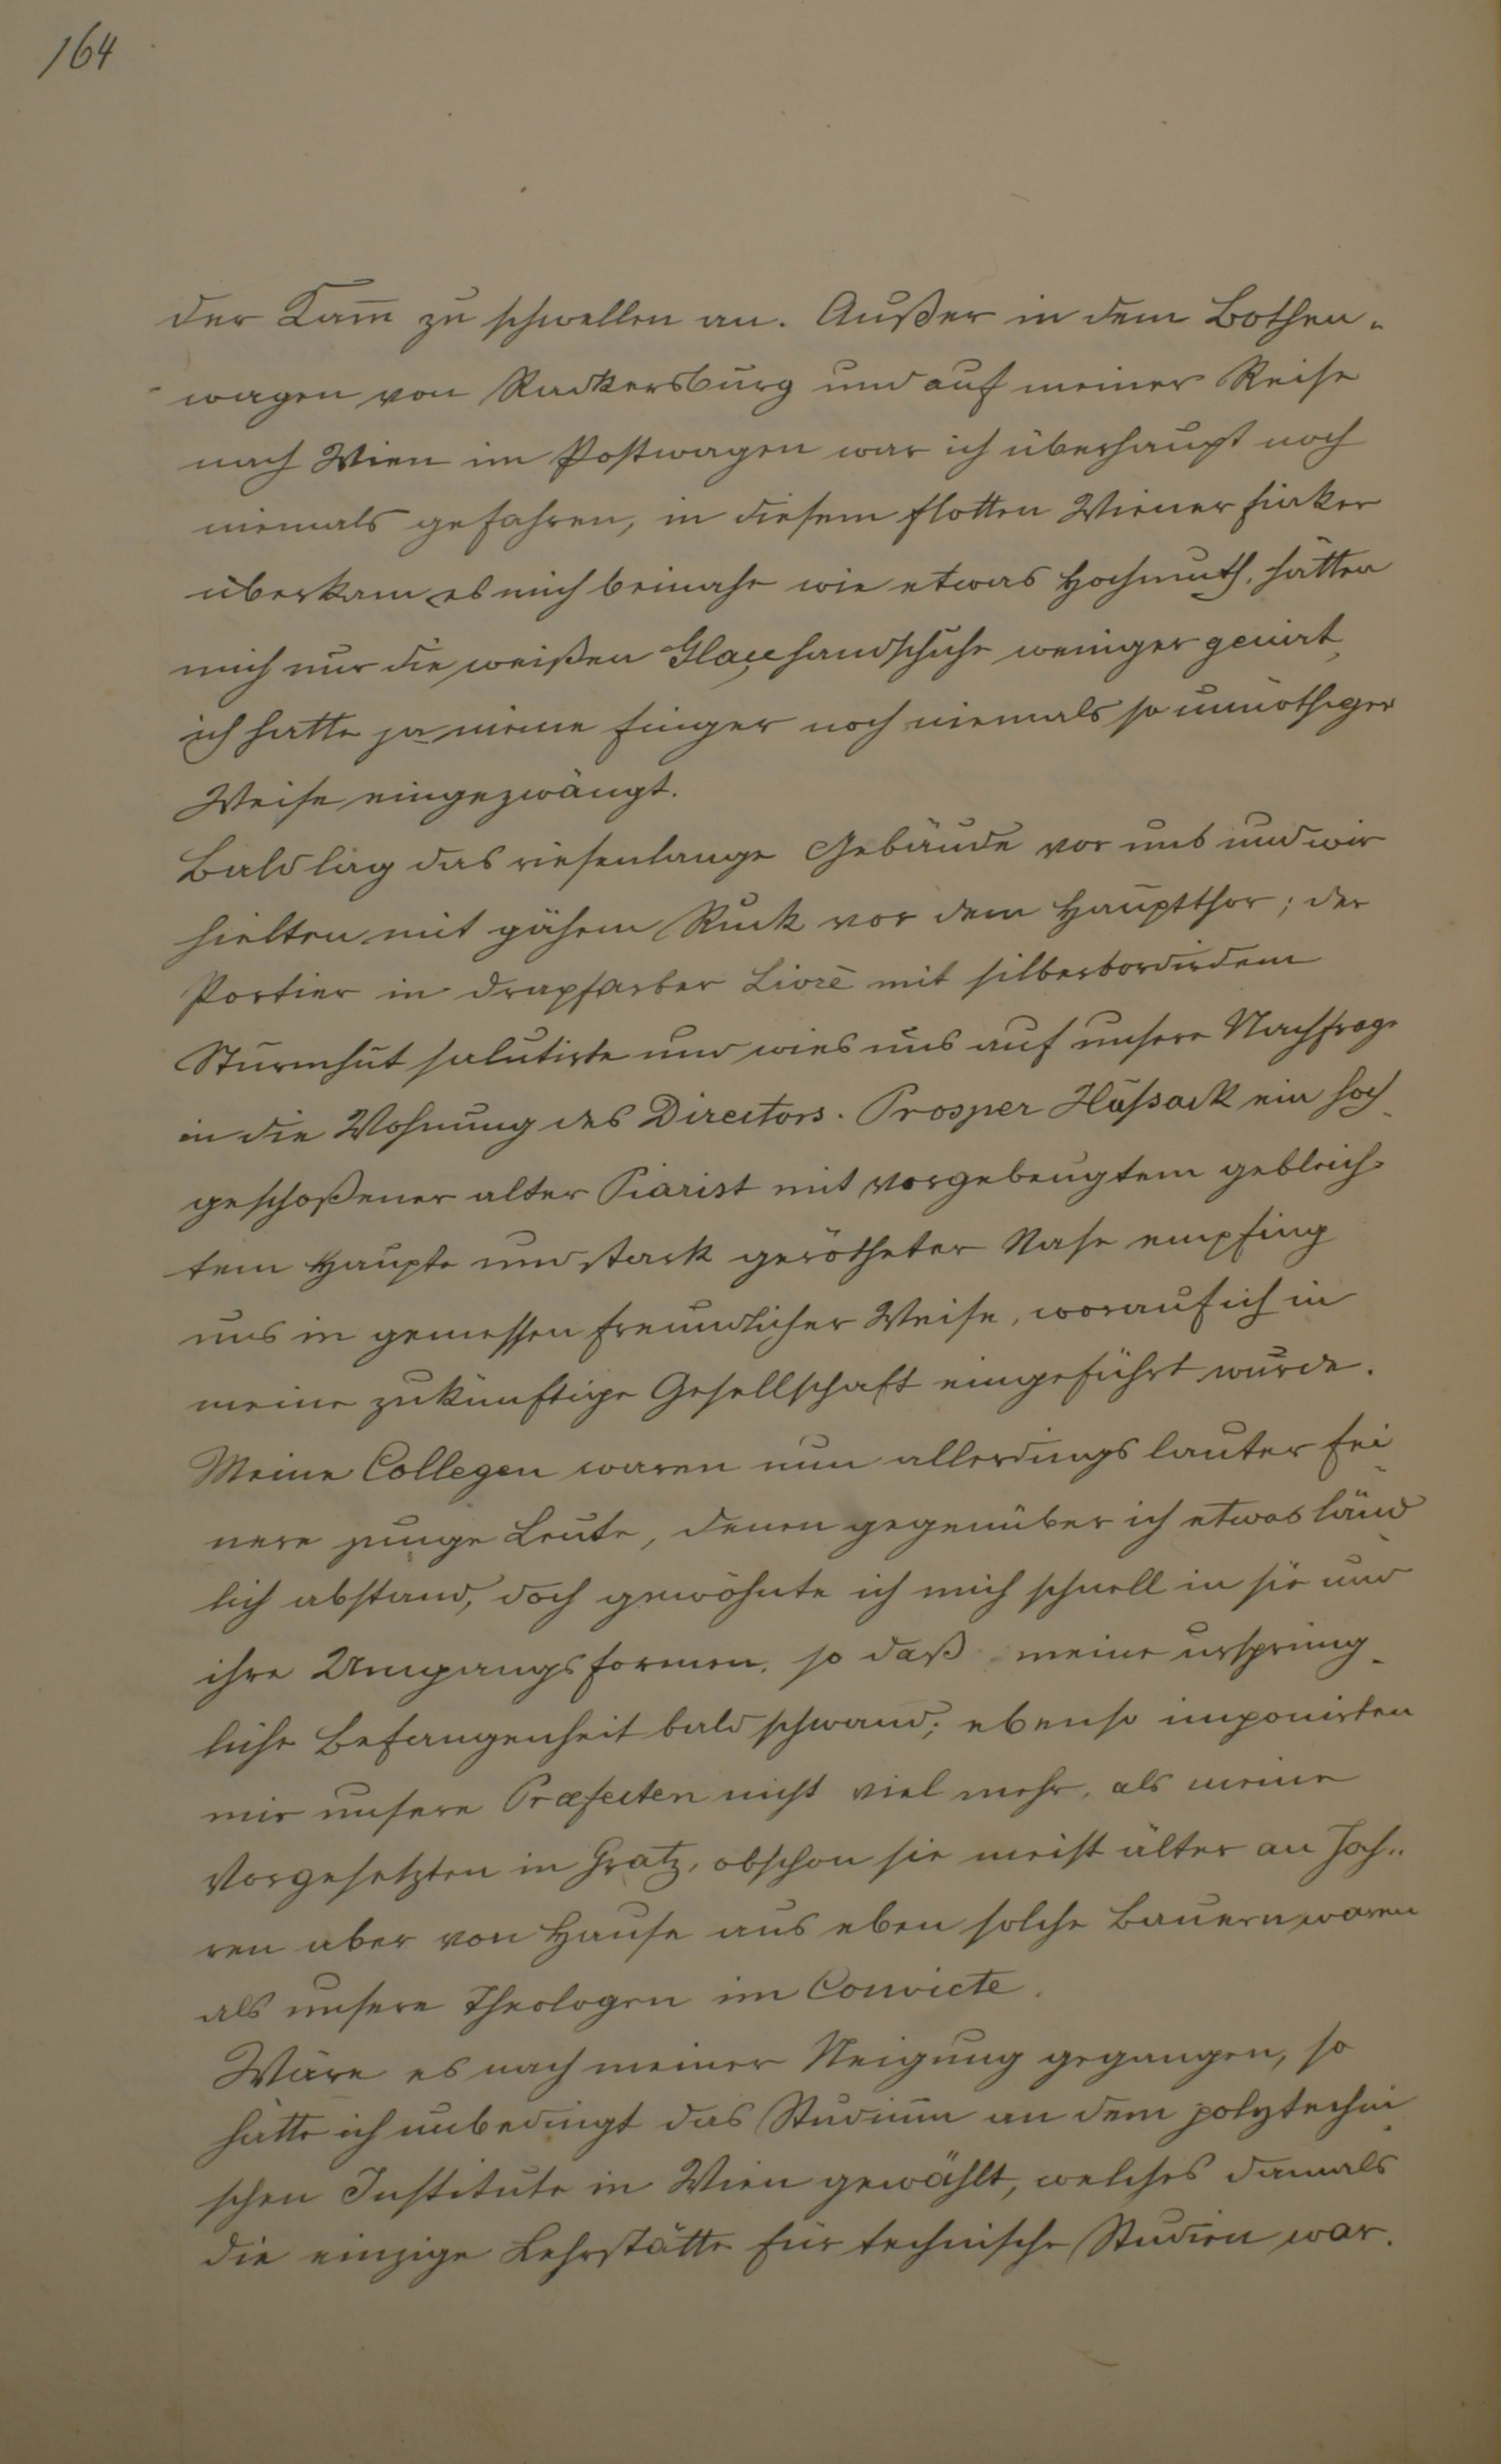 164
der Kam̄ zu schwellen an. Außer in dem Bothen-
wagen von Radkersburg und auf meiner Reise
nach Wien im Postwagen war ich überhaupt noch
niemals gefahren, in diesem flotten Wiener Fiaker
überkam es mich beinahe wie etwas Hochmuth, hätten
mich nur die weißen Glacehandschuhe weniger genirt,
ich hatte ja meine Finger noch niemals so unnöthiger
Weise eingezwängt.
Bald lag das riesenlange Gebäude vor uns und wir
hielten mit gähem Ruck vor dem Hauptthor; der
Portier in drapfarber Livrè mit silberbordirdem
Sturmhut salutirte und wies uns auf unsere Nachfrage
in die Wohnung des Directors. Prosper Hussack ein hoch
geschoßener alter Piarist mit vorgebeugtem gebleich-
tem Haupte und stark gerötheter Nase empfing
uns in gemessen freundlicher Weise, worauf ich in
meine zukünftige Gesellschaft eingeführt wurde.
Meine Collegen waren nun allerdings lauter fei
nere junge Leute, denen gegenüber ich etwas länd
lich abstand, doch gewöhnte ich mich schnell in sie und
ihre Umgangsformen, so daß meine ursprüng-
liche Befangenheit bald schwand; ebenso imponirten
mir unsere Præfecten nicht viel mehr, als meine
Vorgesetzten in Gratz, obschon sie meist älter an Jah-
ren aber von Hause aus eben solche Bauern waren
als unsere Theologen im Convicte.
Wäre es nach meiner Neigung gegangen, so
hätte ich unbedingt das Studium an dem polytechni
schen Institute in Wien gewählt, welches damals
die einzige Lehrstätte für technische Studien war.